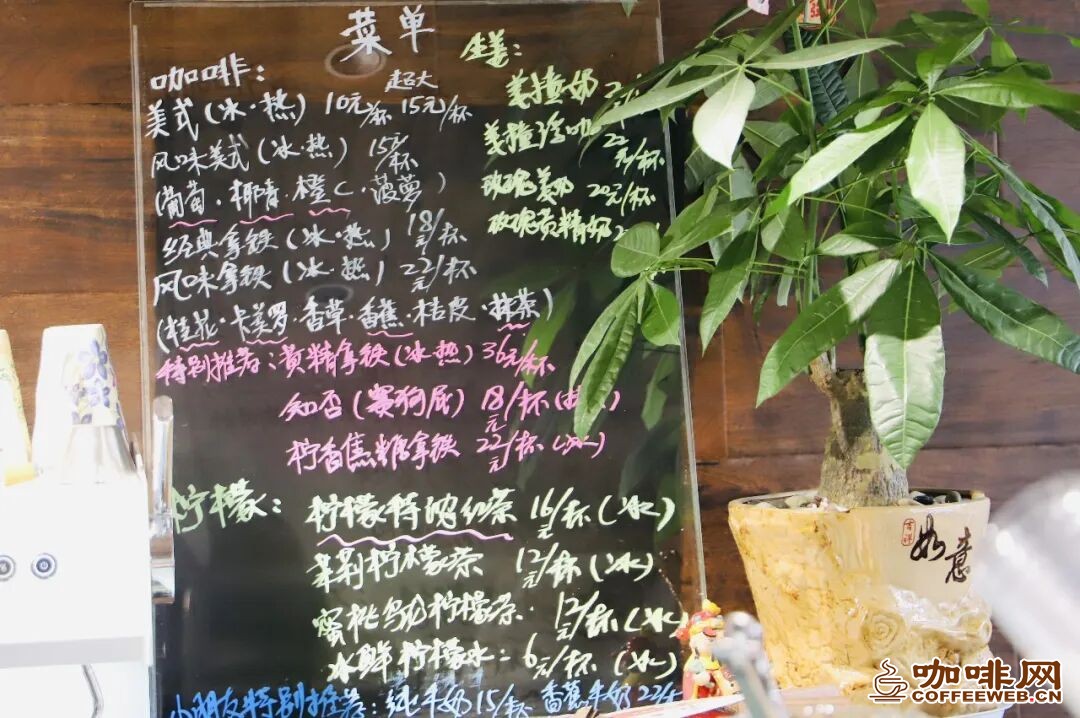 菜单
咖啡：
超大
美式（冰·热）10元/杯 15元/杯
风味美式（冰·热）15元/杯
（葡萄·椰青·橙C·菠萝）
经典拿铁（冰·热）18元/杯
风味拿铁（冰·热）22元/杯
（桂花·卡美罗·香草·香蕉·桔皮·抹茶）
特别推荐：黄精拿铁（冰热）36元/杯
知否（赛狗屁）18元/杯
柠香焦糖拿铁 22元/杯（冰）
生姜：
姜撞奶
姜撞 22元/杯
玫瑰姜 20元/杯
玫瑰黄精
柠檬：
柠檬 红茶 16元/杯（冰）
茉莉柠檬茶 12元/杯（冰）
蜜桃乌龙柠檬茶· 12元/杯（冰）
冰鲜柠檬水：6元/杯（冰）
小朋友特别推荐：纯牛奶15/杯 香蕉牛奶 22
吉祥
如意
咖啡网
COFFEEWEB.CN